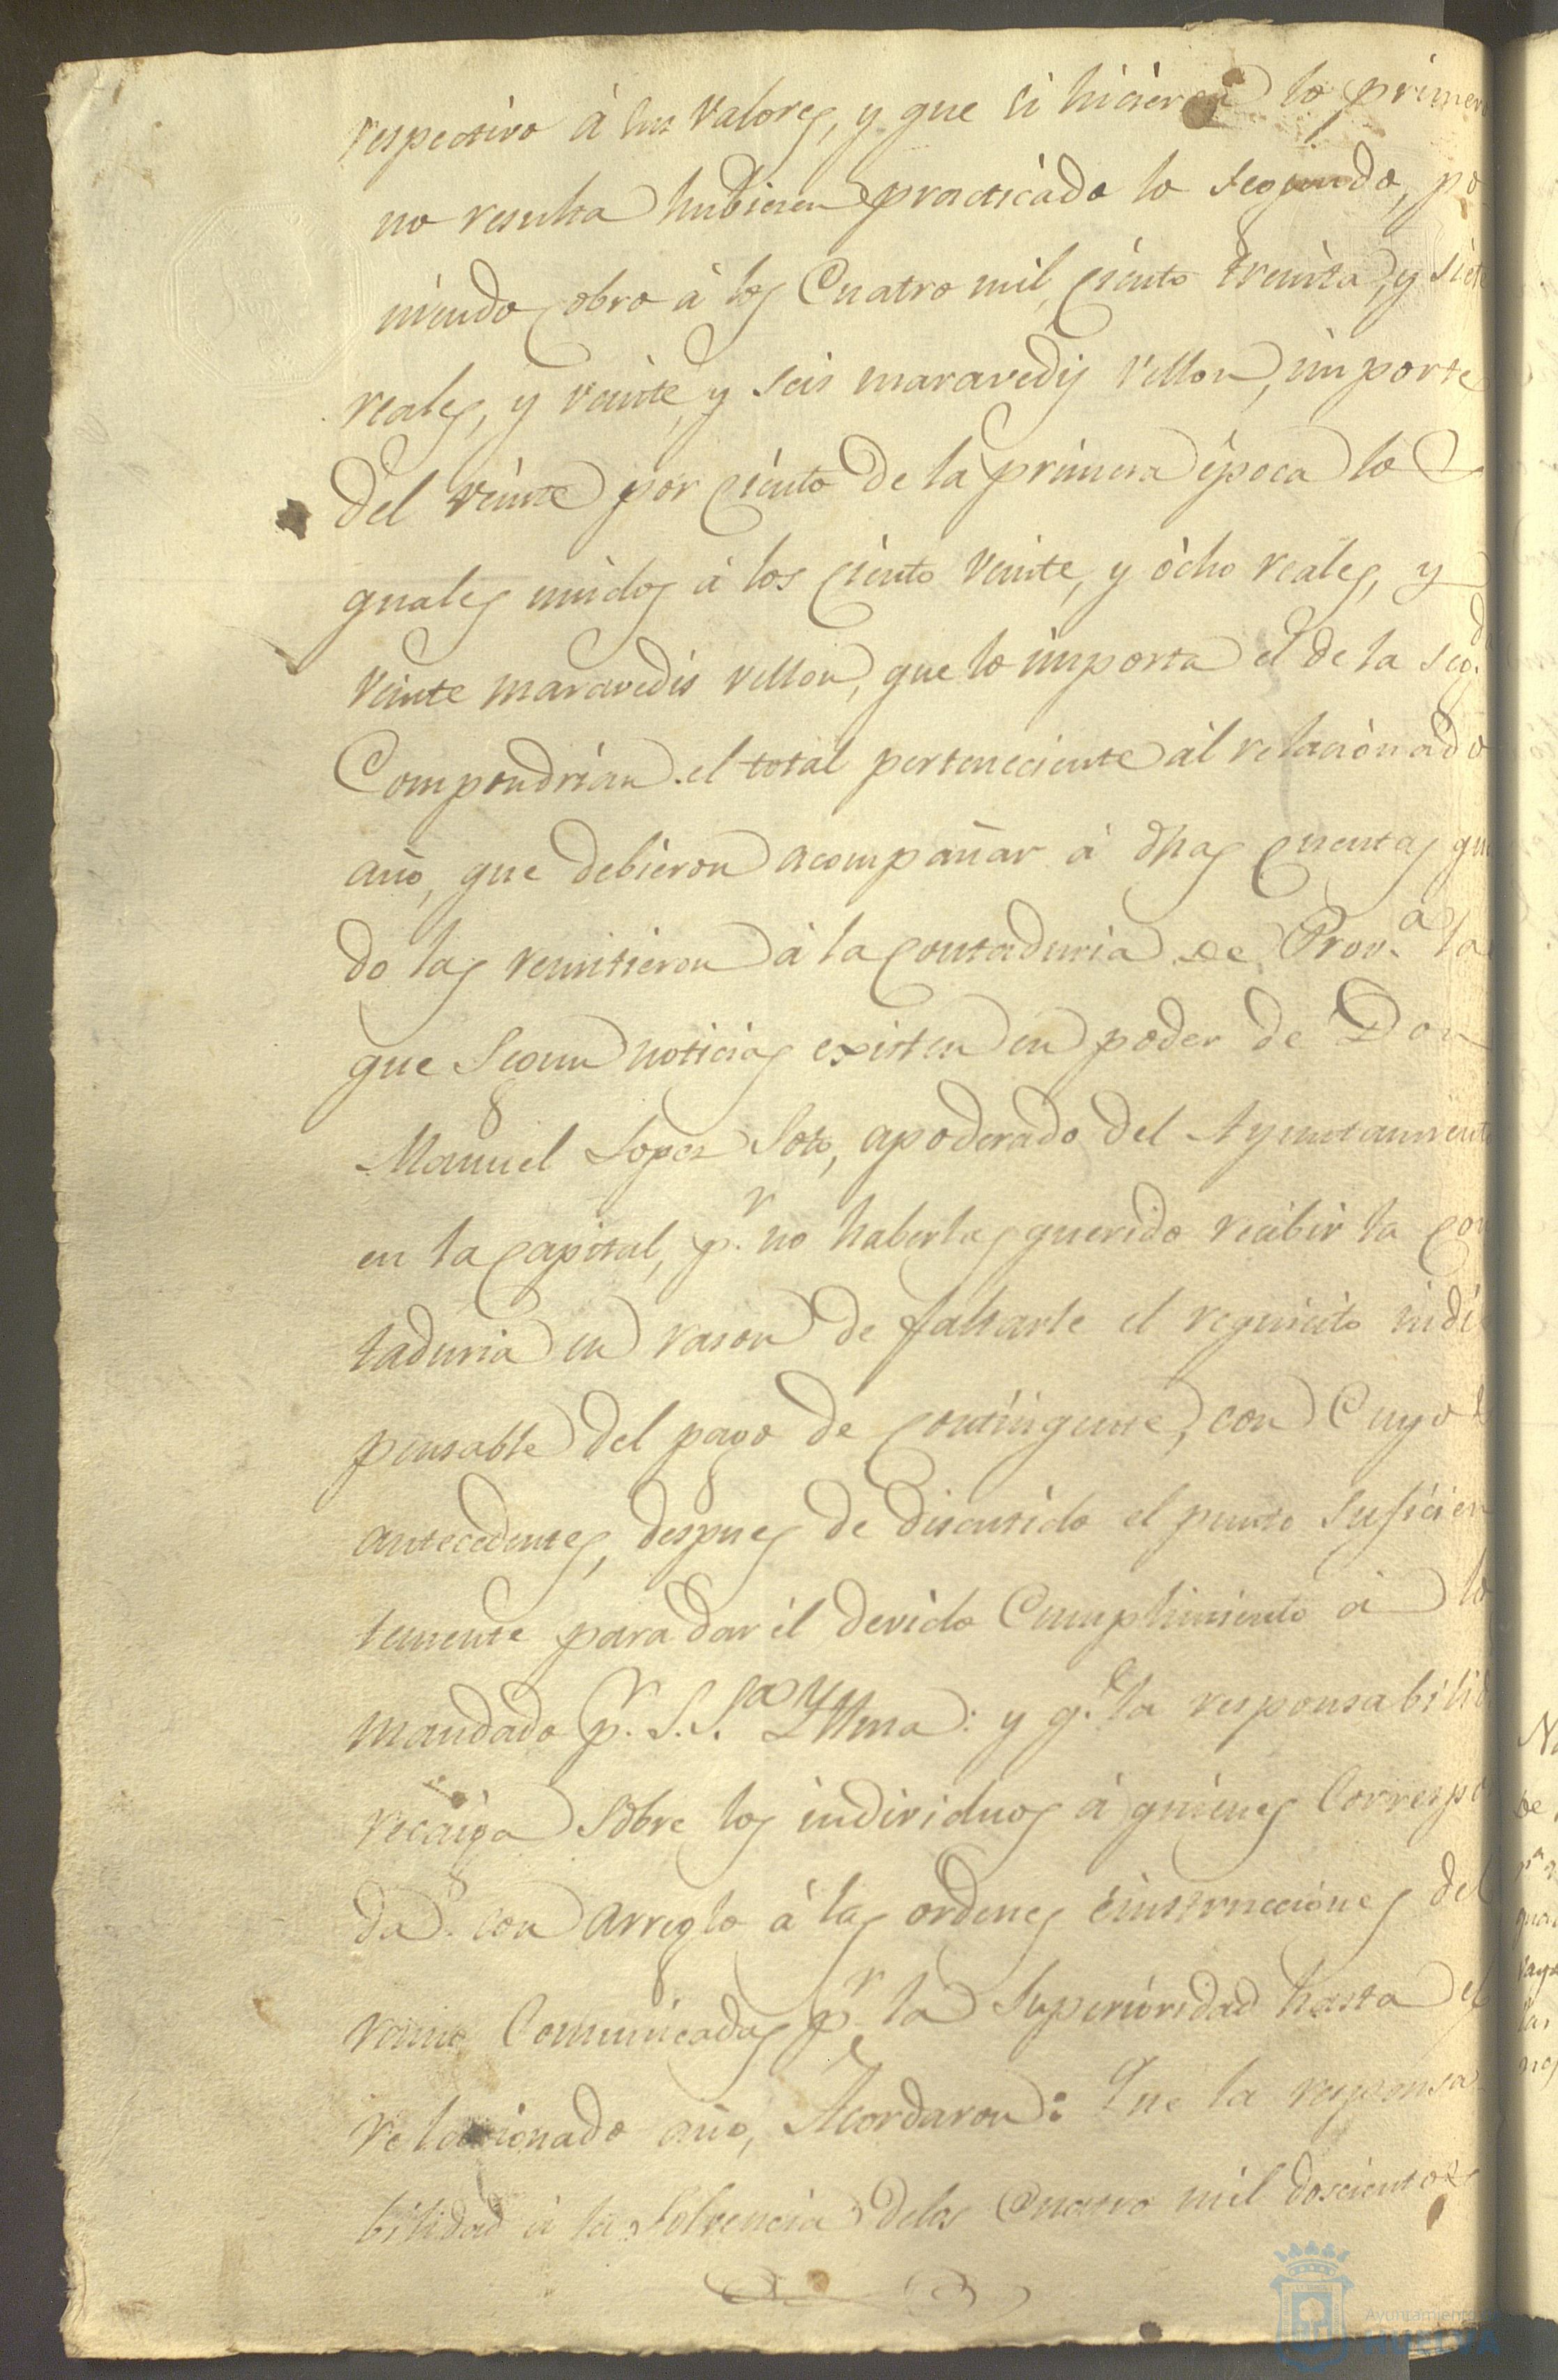 respectivo à sus valores, y que si hicieron lo primero
no resulta hubiesen practicado lo segundo, po
niendo cobro à los Cuatro mil, ciento treinta, y siete
reales, y veinte, y seis maravedis vellon, importe
del veinte por ciento de la primera època lo
quales unidos à los ciento veinte, y òcho reales, y
veinte maravedis vellon, que lo importa el de la seg.da
Compondrian el total perteneciente àl relacionado
año, que debieron acompañar à dhas cuentas qu
do las remitieron à la contaduria de Prov.a la
que segun noticias existen en poder de Don
Manuel Lopez Soto, apoderado del Ayuntamiento
en la capital, p.r no haberlas querido recibir la con
taduria en rason de faltarle el requicito indi
pensable del pago de contingente, con Cuyo
antecedentes, despues de discutido el punto suficien
temente para dar èl devido Cumplimiento à lo
mandado p.r S.S.a Yllma: y q.e la responsabilid
recaiga sobre los individuos à quienes Correspo
da con arreglo à las ordenes è instrucciones del
ramo Comunicadas p.r la Superioridad hasta el
relacionado año, Acordaron: Que la responsa
bilidad à la Solvencia delos Cuatro mil doscientos
Ayuntamiento
HUELVA